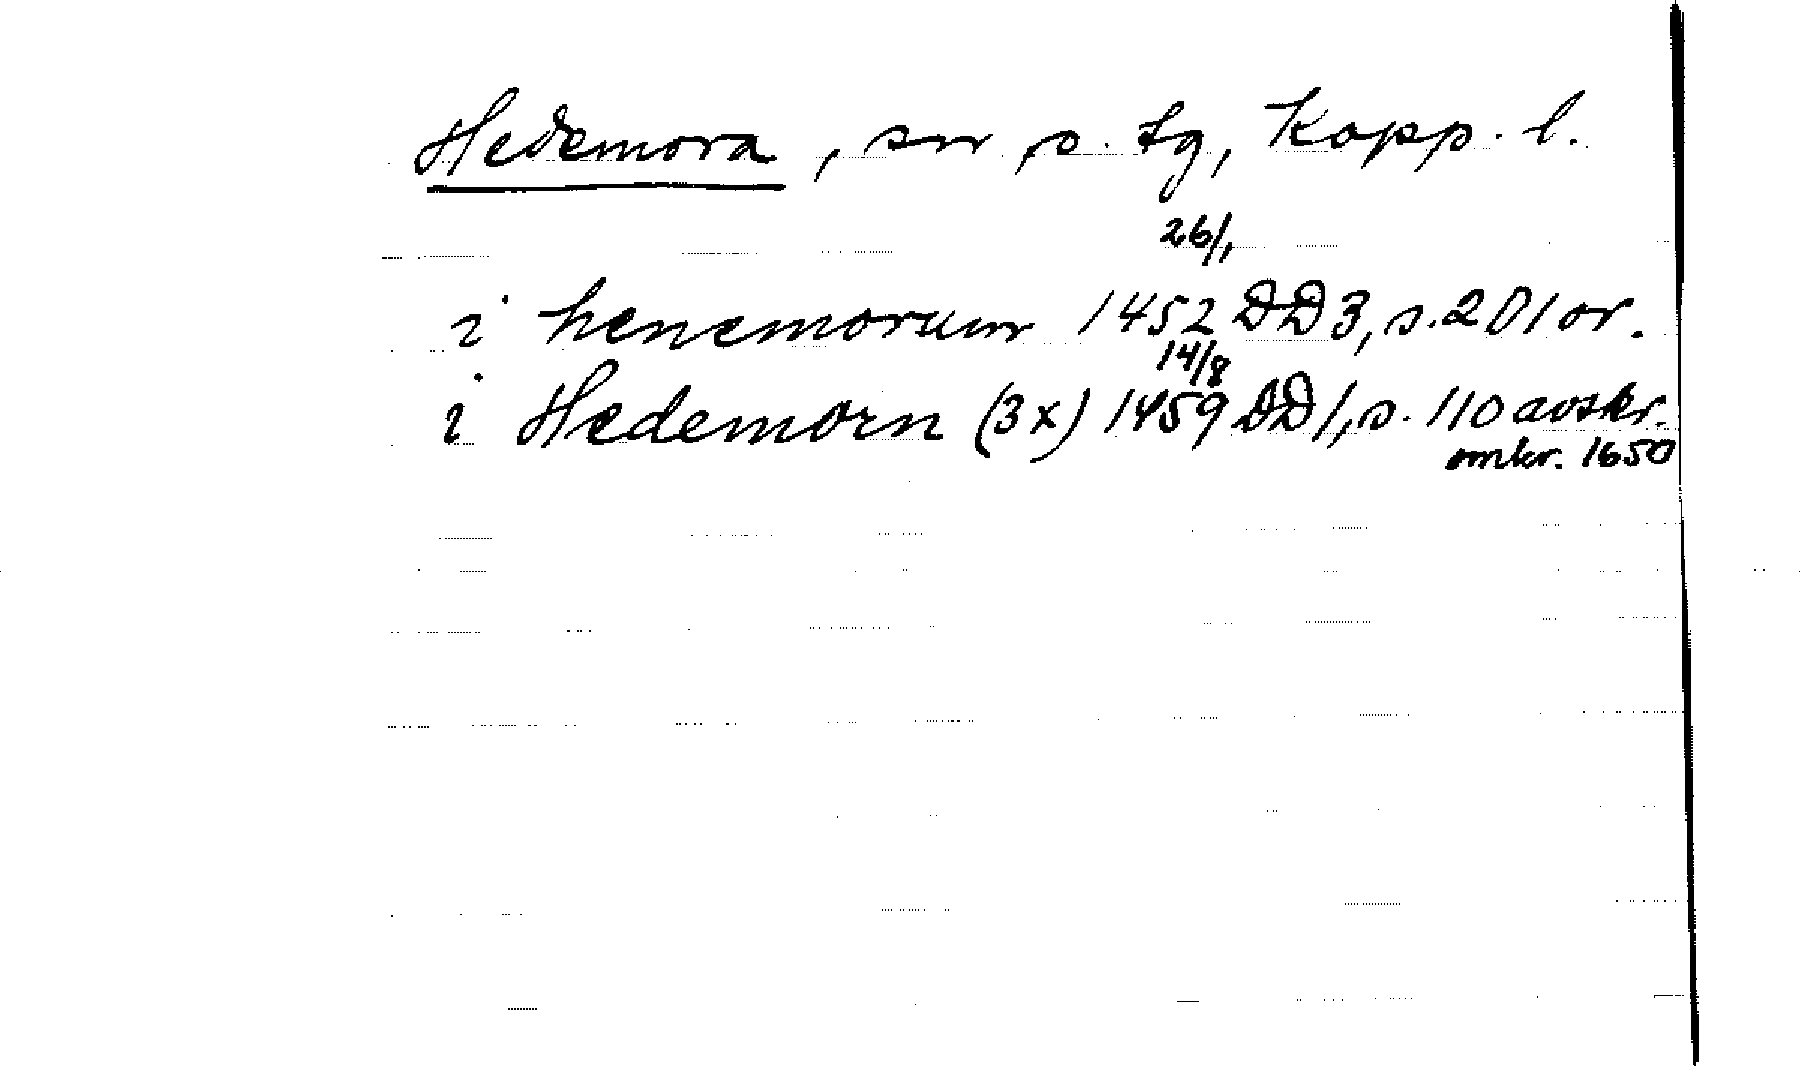 Hedemora, sn, s. tg, Kopp. l.
26/1
i henemorum 1452 DD 3, s. 201 or.
14/8
i Hedemorn (3x) 1459 DD 1, s. 110 avskr.
omkr. 1650